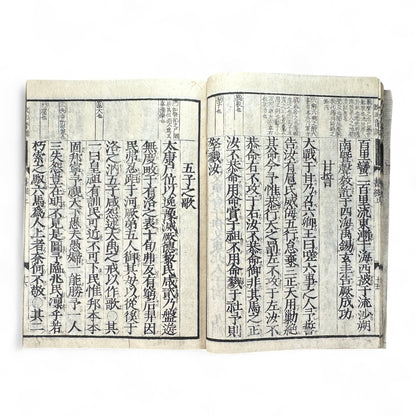 百里蠻二百里流東漸于海西被于流沙朔
南曁聲教訖于四海禹錫玄圭告厥成功
甘誓
大戰于甘乃召六卿王曰嗟六事之人予誓
告汝有扈氏威侮五行怠棄三正天用勦絶
其命今予惟恭行天之罰左不攻于左汝不
恭命右不攻于右汝不恭命御非其馬之正
汝不恭命用命賞于祖不用命戮于社予則
孥戮汝
五子之歌
太康尸位以逸豫滅厥德黎民咸貳乃盤遊
無度畋于有洛之表十旬弗反有窮后羿因
民弗忍距于河厥弟五人御其母以從徯于
洛之汭五子咸怨述大禹之戒以作歌其
一曰皇祖有訓民可近不可下民惟邦本本
固邦寧予視天下愚夫愚婦一能勝予一人
三失怨豈在明不見是圖予臨兆民凜乎若
朽索之馭六馬爲人上者奈何不敬其二